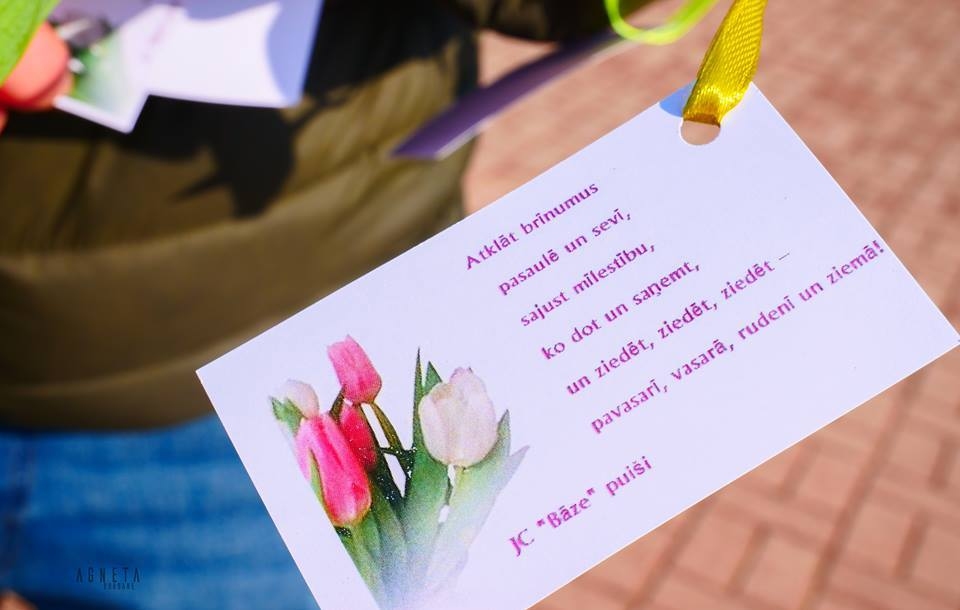 Atklāt brīnumus
pasaulē un sevī,
sajust mīlestību,
ko dot un saņemt,
un ziedēt, ziedēt, ziedēt –
pavasarī, vasarā, rudenī un ziemā!
JC "Bāze" puiši
AGNETA